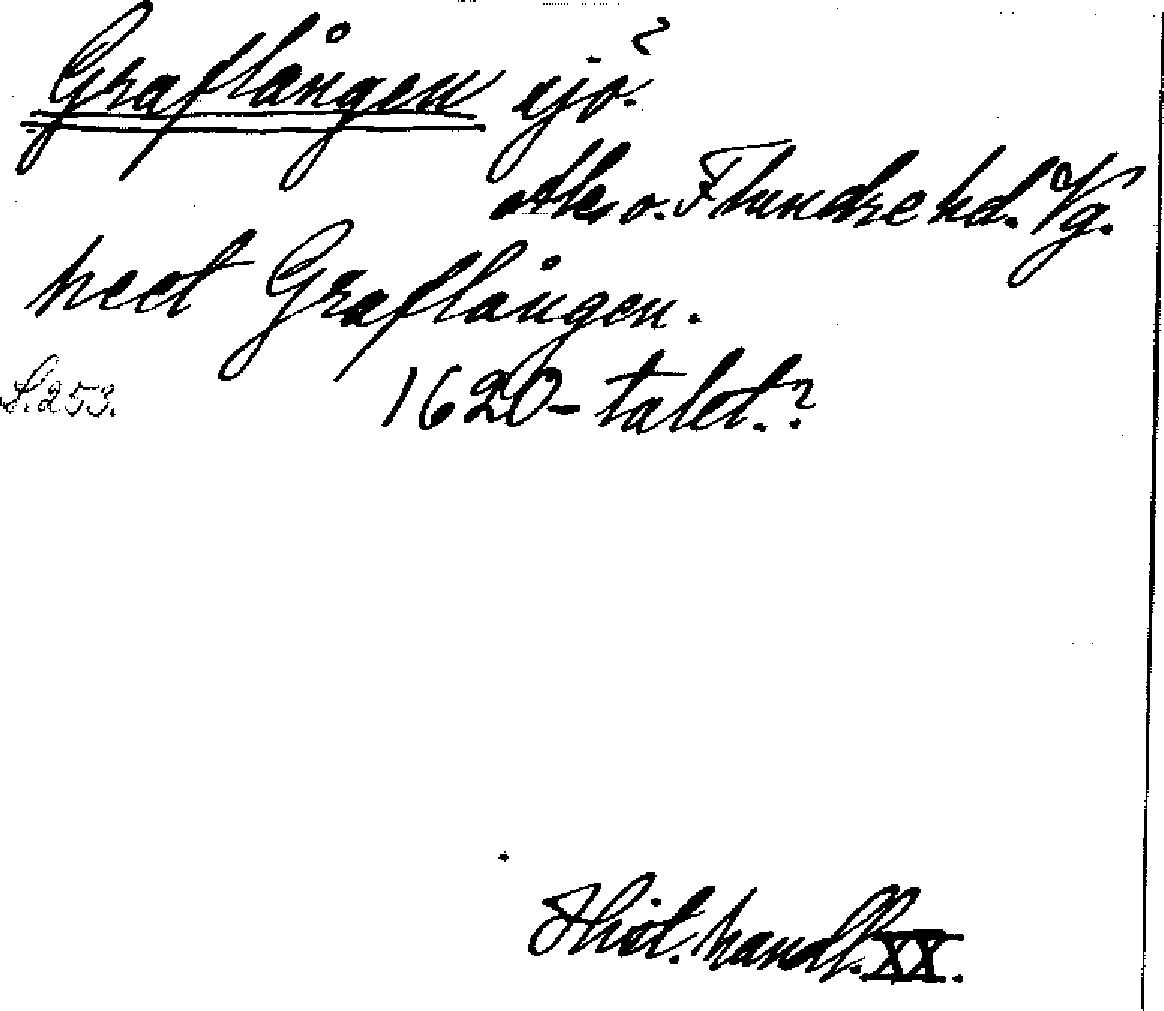 Graflången sjö?
Ale o. Flundre hd. Vg.
heet Graflången.
S. 253. 1620-talet.?
Hist. handl. XX.